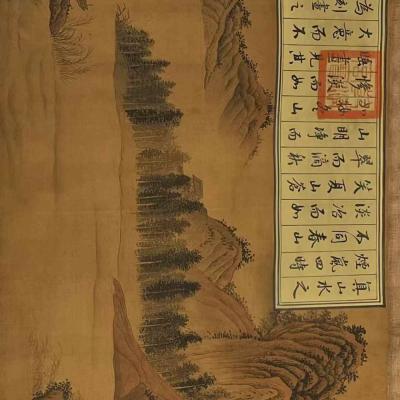 真山水之
煙嵐四時
不同春山
淡冶而如
笑夏山蒼
翠而滴秋
山明淨而
冬山
慘淡而如
畫見其
大意而不
為刻畫之